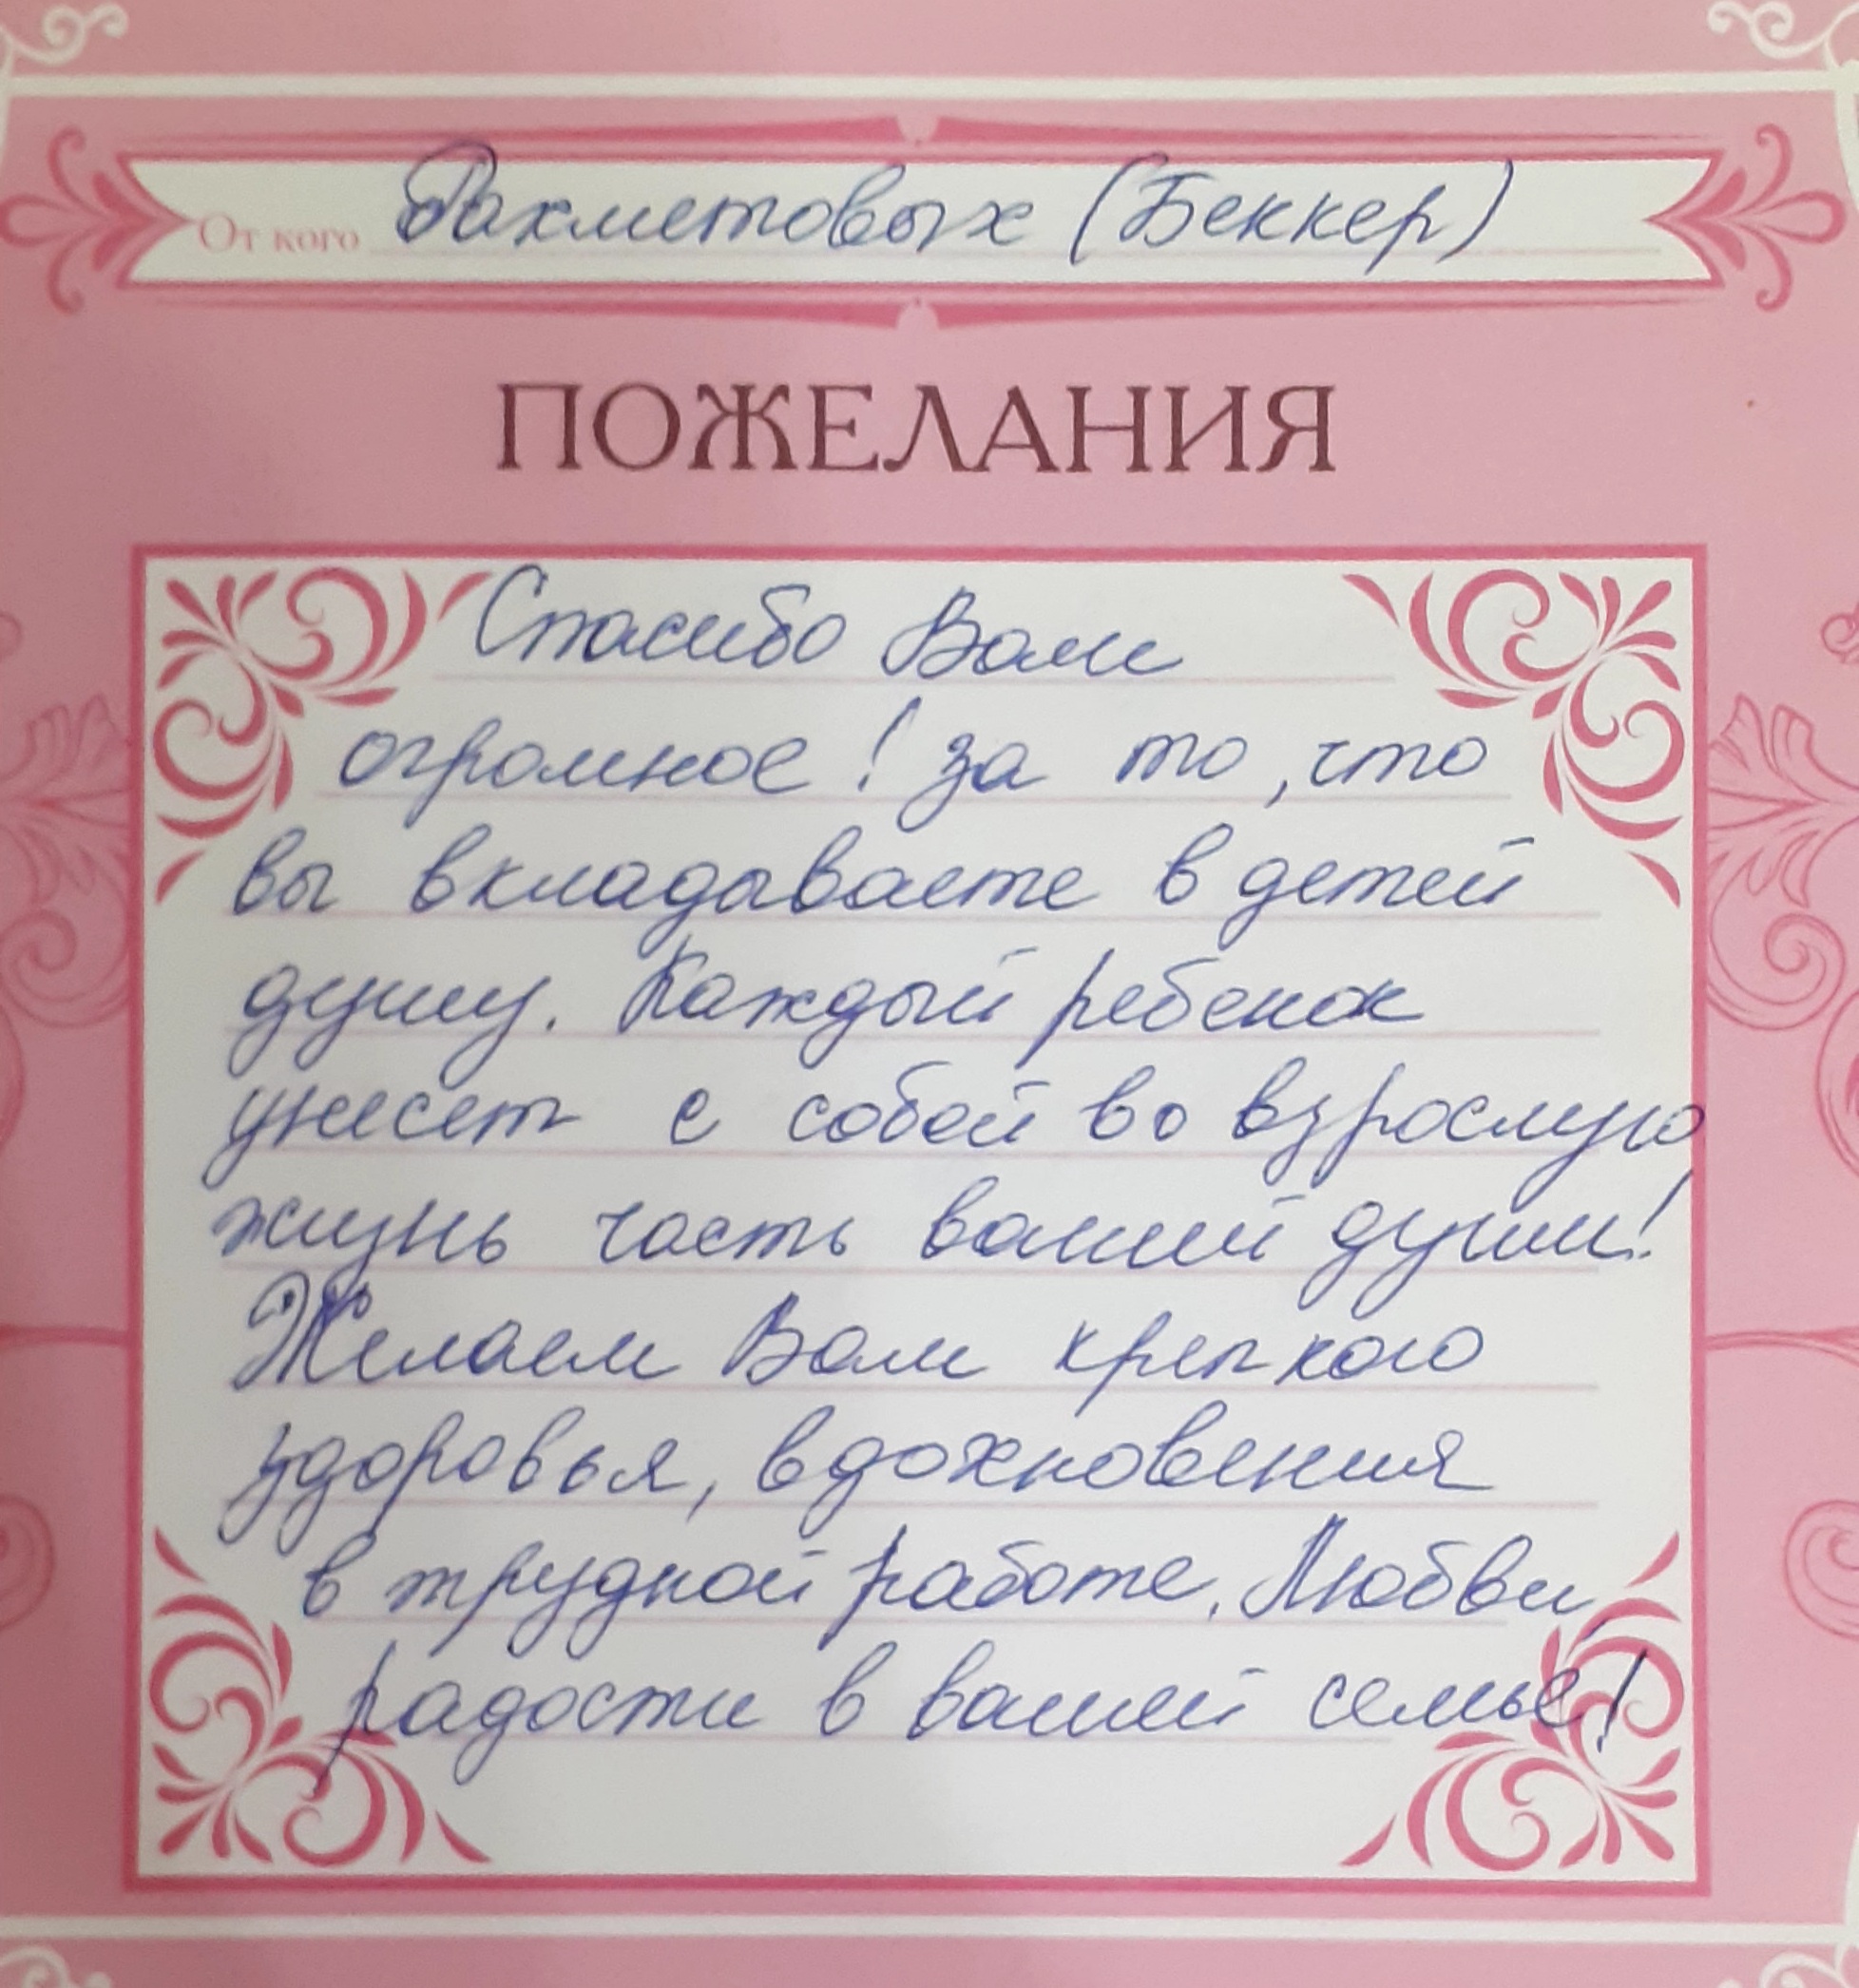 От кого Рахметовых (Беккер)
ПОЖЕЛАНИЯ
Спасибо Вам
огромное! за то, что
вы вкладываете в детей
душу. Каждый ребенок
унесет с собой во взрослую
жизнь часть вашей души!
Желаем Вам крепкого
здоровья, вдохновения
в трудной работе. Любви,
радости в вашей семье!